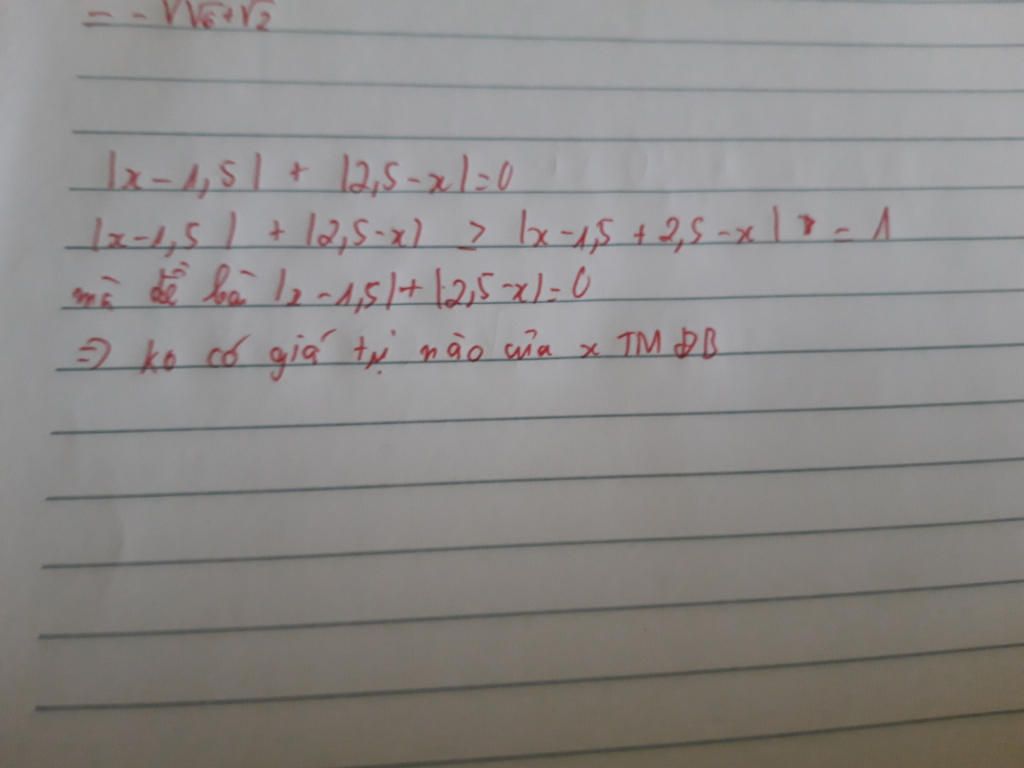 = - √√6+√2
|x-1,5| + |2,5-x|=0
|x-1,5| + |2,5-x| ≥ |x-1,5 + 2,5-x| = 1
mà đề bà |x-1,5|+|2,5-x|=0
=> ko có giá trị nào của x TM ĐB